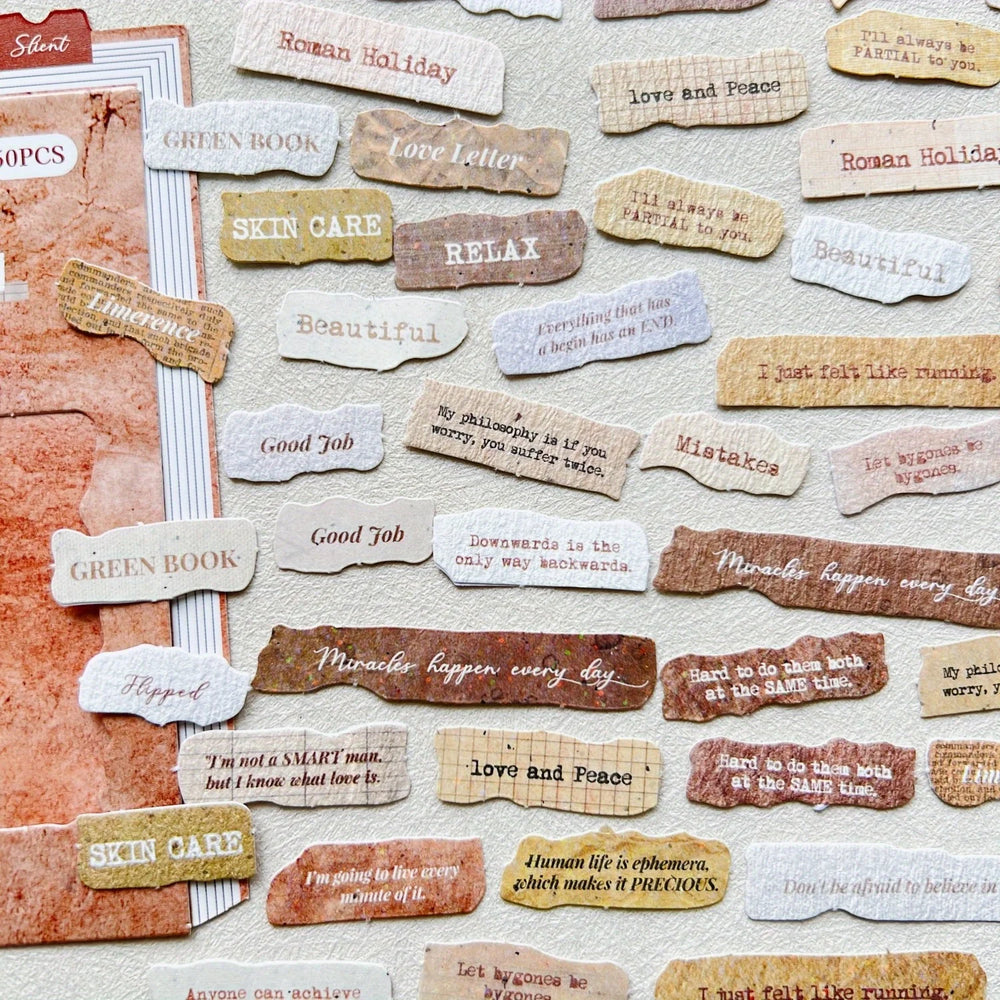 Slient
50PCS
Roman Holiday
I'll always be
PARTIAL to you.
love and Peace
GREEN BOOK
Love Letter
Roman Holiday
SKIN CARE
RELAX
I'll always be
PARTIAL to you.
Beautiful
commanders respectively such
Limerence
Beautiful
Everything that has
a begin has an END.
I just felt like running.
Good Job
My philosophy is if you
worry, you suffer twice.
Mistakes
Let bygones be
bygones.
GREEN BOOK
Good Job
Downwards is the
only way backwards.
Miracles happen every day
Flipped
Miracles happen every day.
Hard to do them both
at the SAME time.
My philo
worry, y
"I'm not a SMART man,
but I know what love is.
love and Peace
Hard to do them both
at the SAME time.
commanders
Lim
SKIN CARE
I'm going to live every
minute of it.
Human life is ephemera,
which makes it PRECIOUS.
Don't be afraid to believe in
Anyone can achieve
Let bygones be
bygones.
I just felt like running.